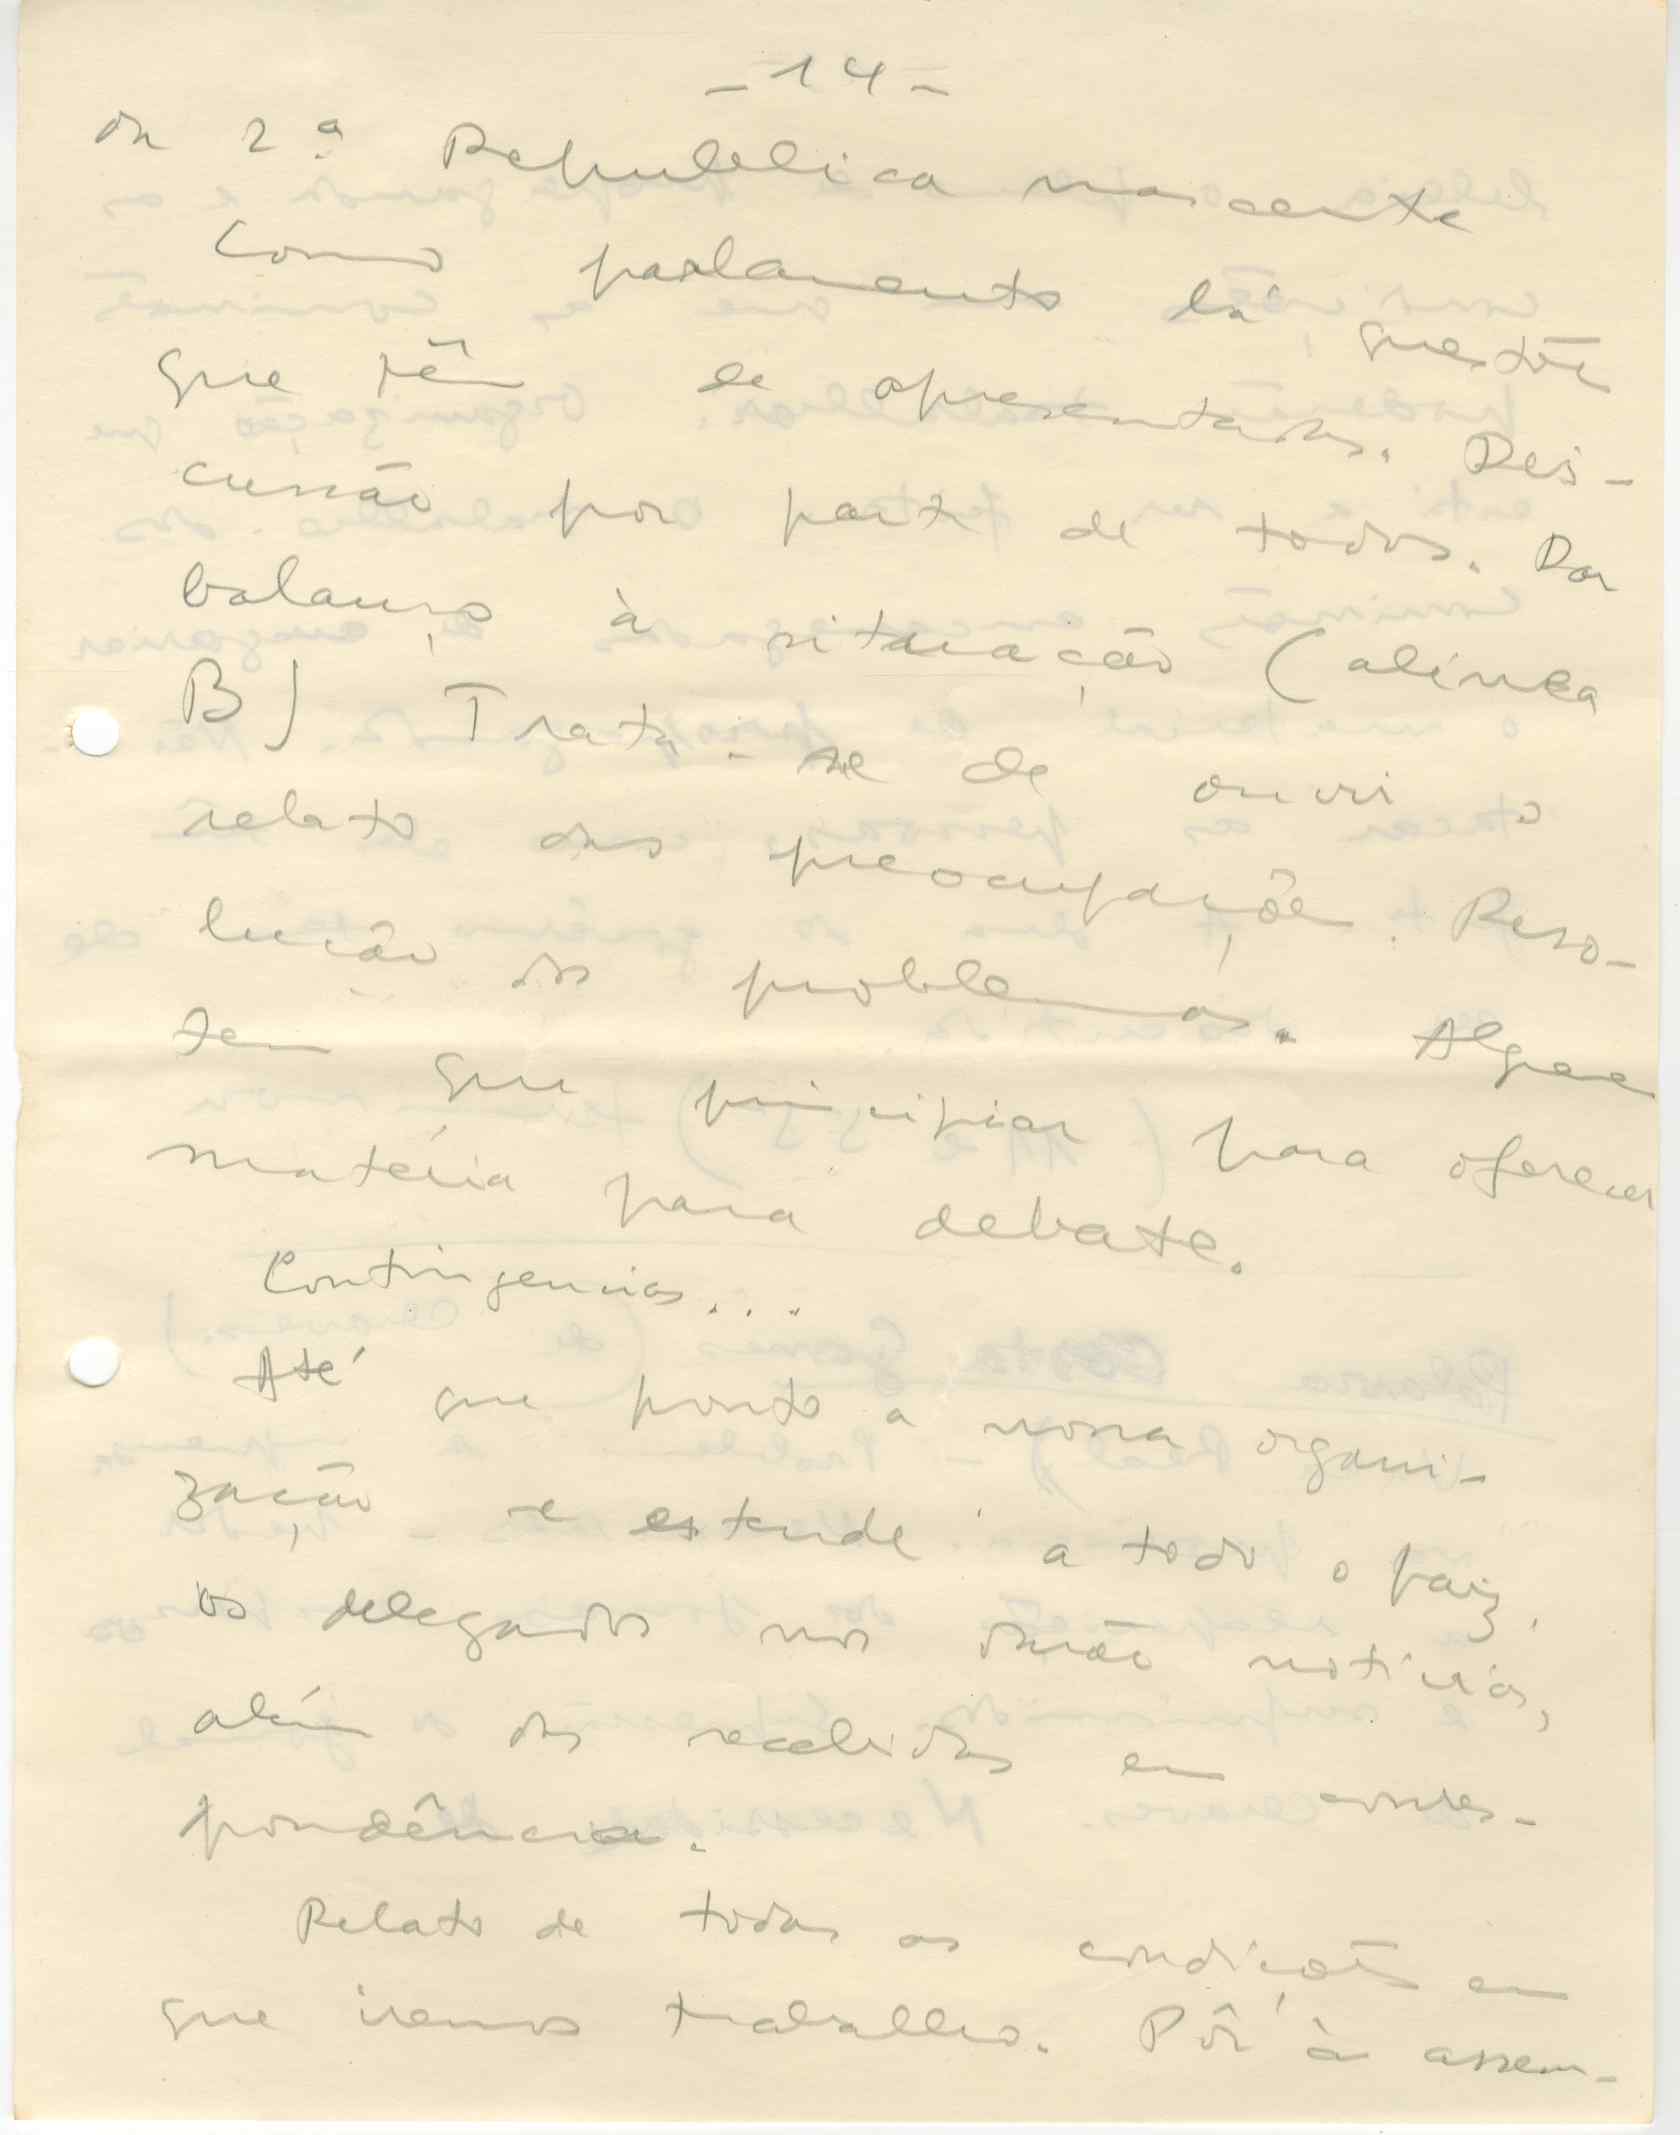 - 14 -
da 2ª Republica nascente
Como parlamento há questões
que têm de apresentadas. Dis-
cussão por parte de todos. Dar
balanço à situação (alínea
B) Trata-se de ouvir o
relato das preocupações. Reso-
lução dos problemas. Alguem
tem que principiar para oferecer
matéria para debate.
Contingencias...
Até que ponto a nossa organi-
zação se estende a todo o paiz.
os delegados nos darão notícias,
além das recebidas em corres-
pondência.
Relato de todas as condições em
que iremos trabalho. Pôr à assem-